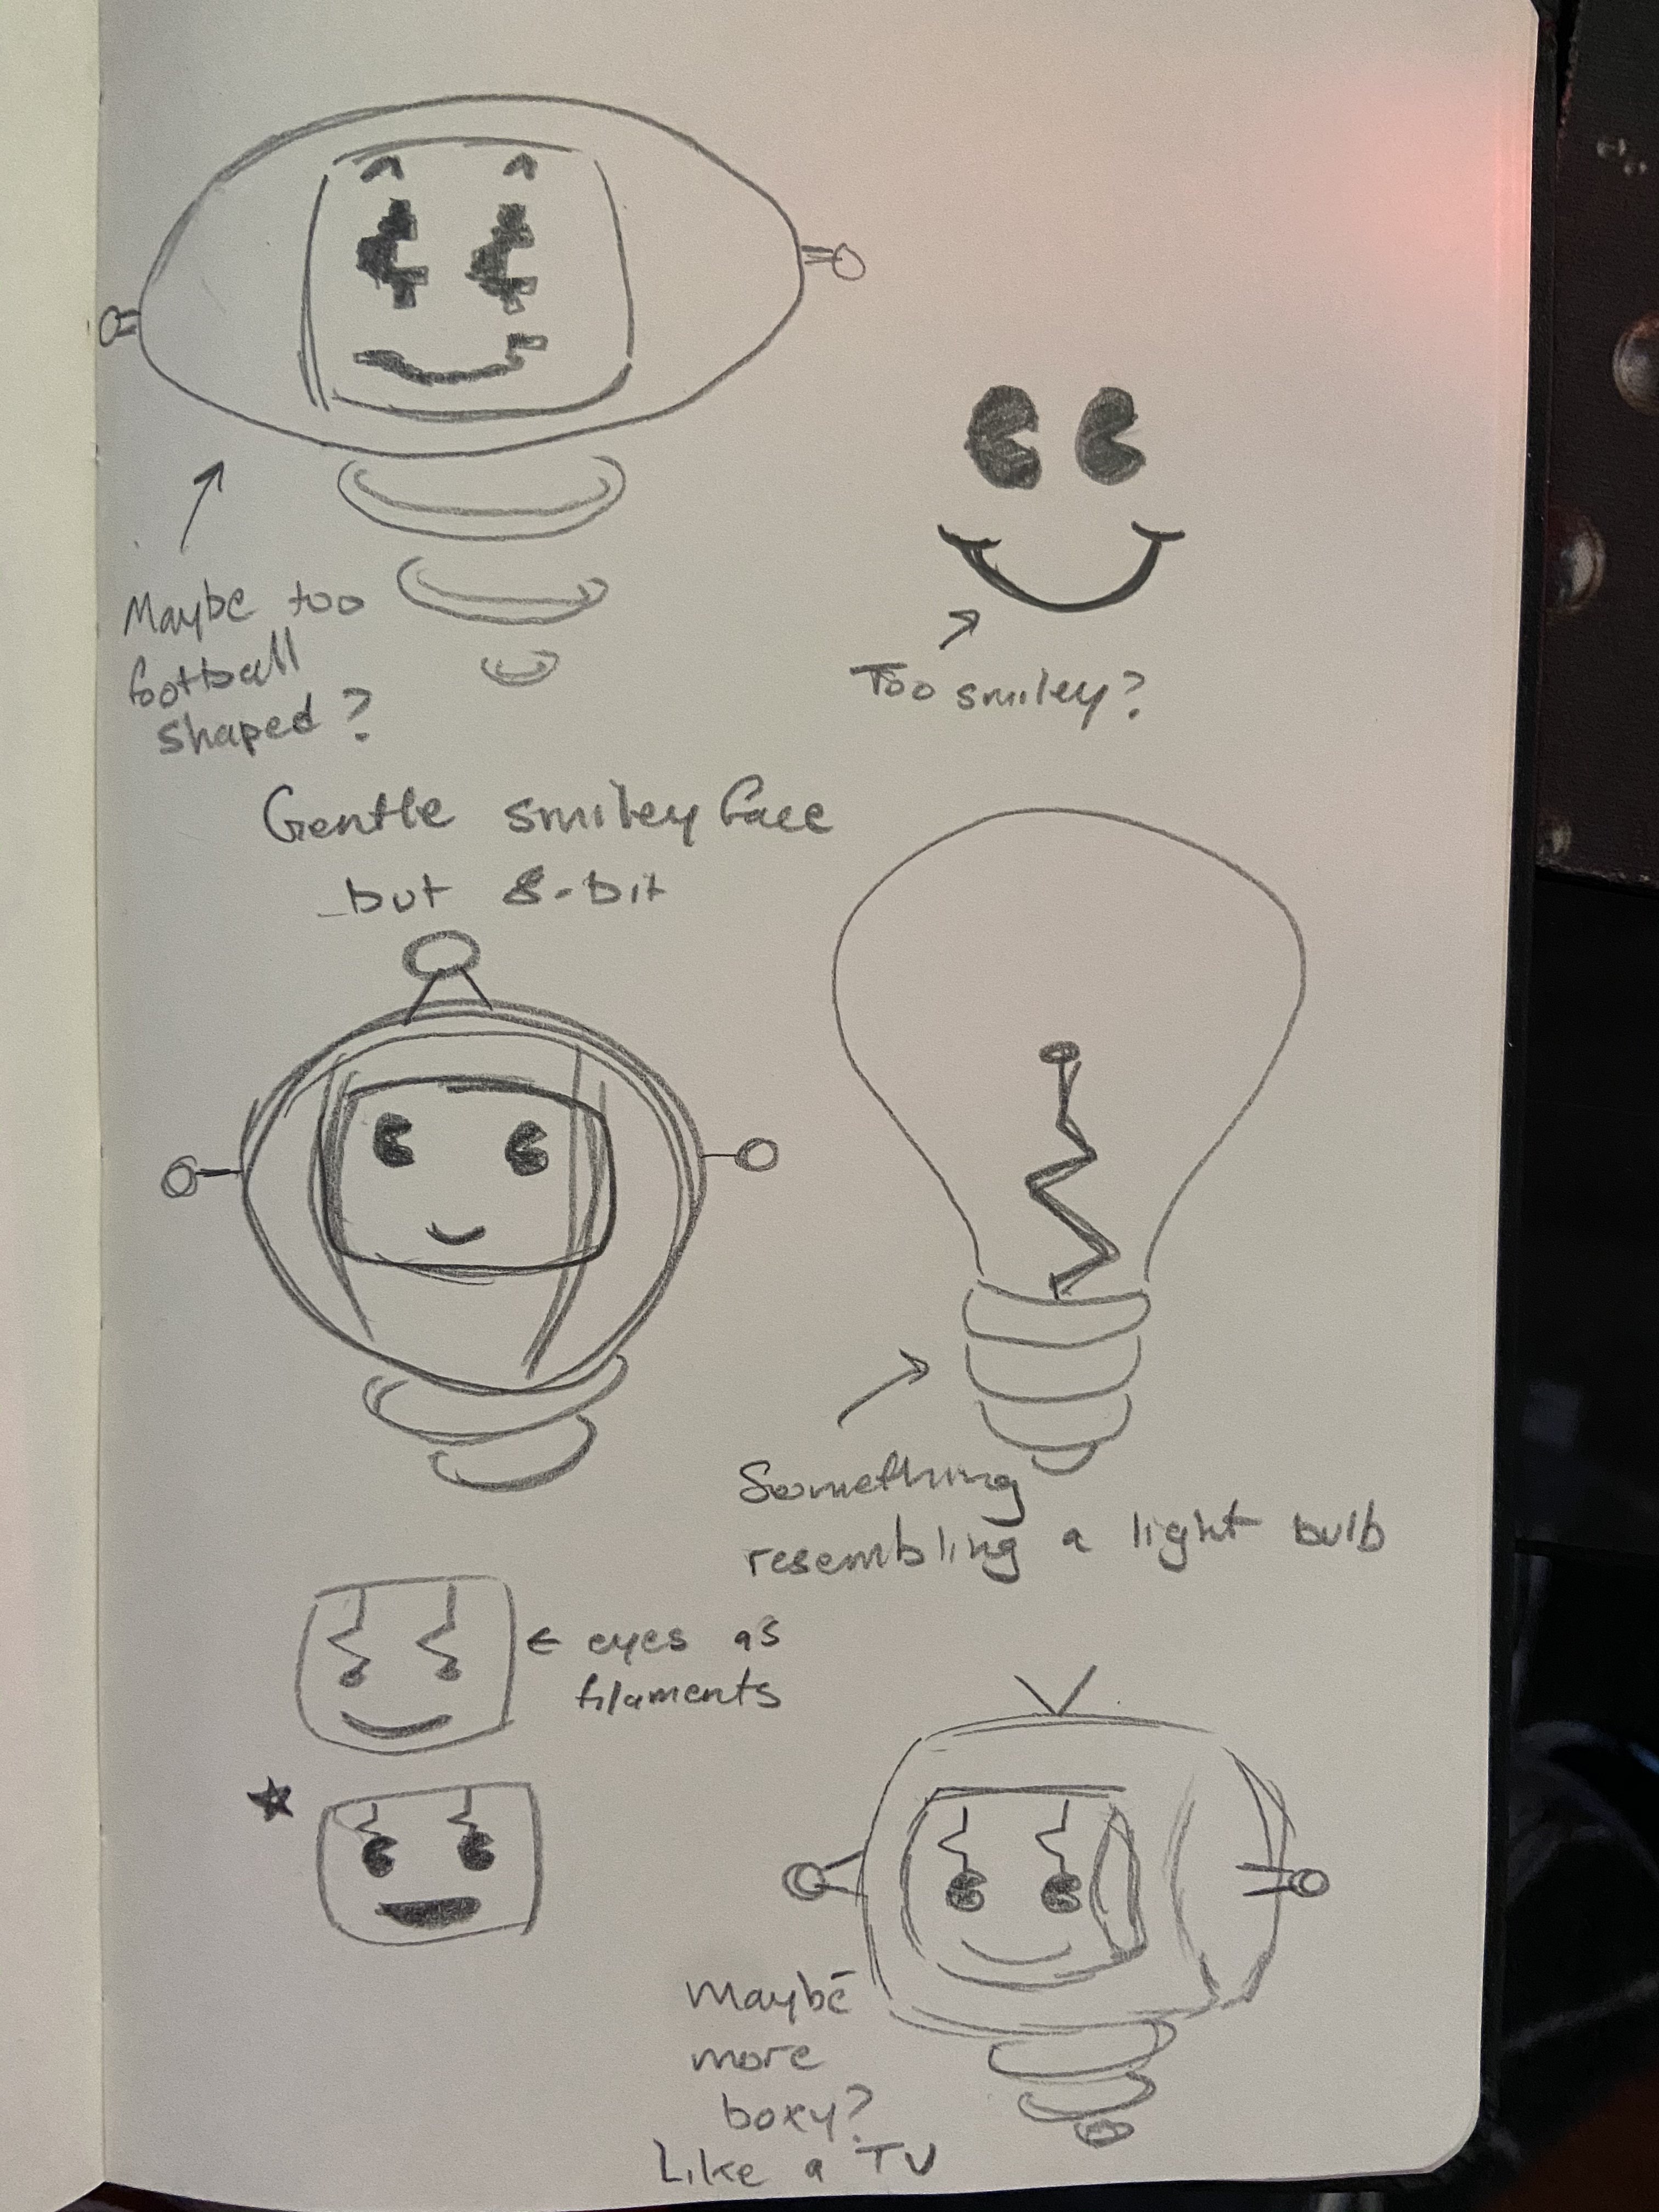 Maybe too
football
shaped?
Too smiley?
Gentle smiley face
but 8-bit
Something
resembling a light bulb
← eyes as
filaments
Maybe
more
boxy?
Like a TV